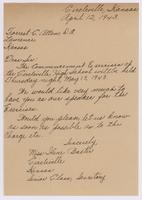 Circleville, Kansas
April 12, 1943.
Forrest C. Allen, D.O.
Lawrence
Kansas
Dear Sir:
The Commencement Exercises of
the Circleville High School will be held
Thursday night, May 13, 1943.
We would like very much to
have you as our speaker for the
Exercises.
Would you please let us know
as soon as possible as to the
charge etc.
Sincerely,
Miss
Circleville
Kansas
Senior Class, Secretary